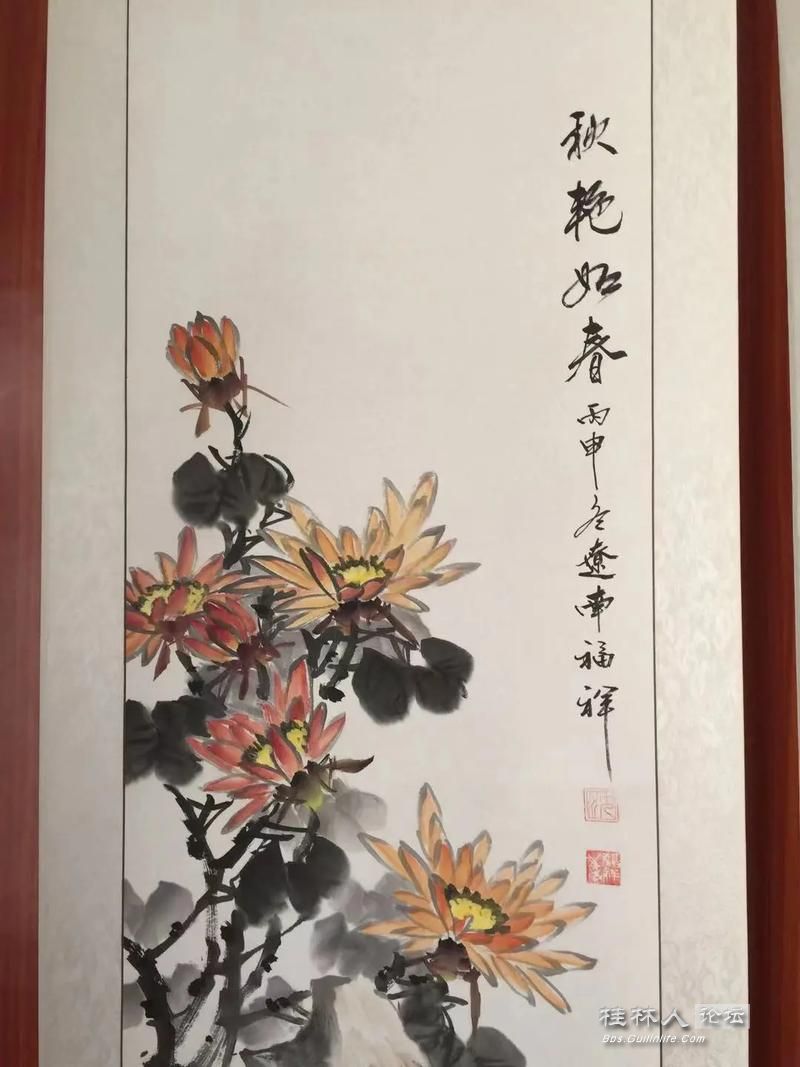 秋艳如春 丙申冬 辽南福祥
桂林人论坛
Bbs.Guilinlife.Com